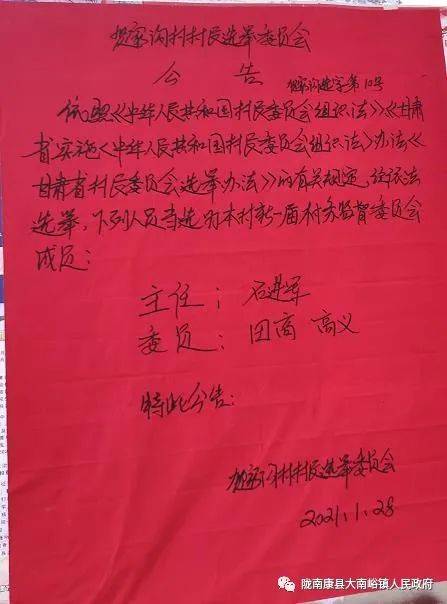 贺家沟村村民选举委员会
公告
贺家沟选字第10号
依照《中华人民共和国村民委员会组识法》《甘肃
省实施〈中华人民共和国村民委员会组识法〉办法《
甘肃省村民委员会选举办法》的有关规定，经依法
选举，下列人员当选为本村新一届村务监督委员会
成员：
主任：石进军
委员：田商 高义
特此公告：
贺家沟村村民选举委员会
2021.1.28
陇南康县大南峪镇人民政府